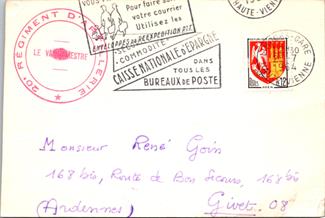 20e REGIMENT D'ARTILLERIE
LE VAGUEMESTRE
VOUS
Pour faire
votre courrier
Utilisez les
ENVELOPPES DE RÉEXPÉDITION P.T.T.
COMMODITÉ
CAISSE NATIONALE D'ÉPARGNE
DANS
TOUS LES
BUREAUX DE POSTE
HAUTE-VIENNE
GARE
Monsieur René Goin
168 bis, Route de Bon Secours, 168 bis
Givet 08
(Ardennes)